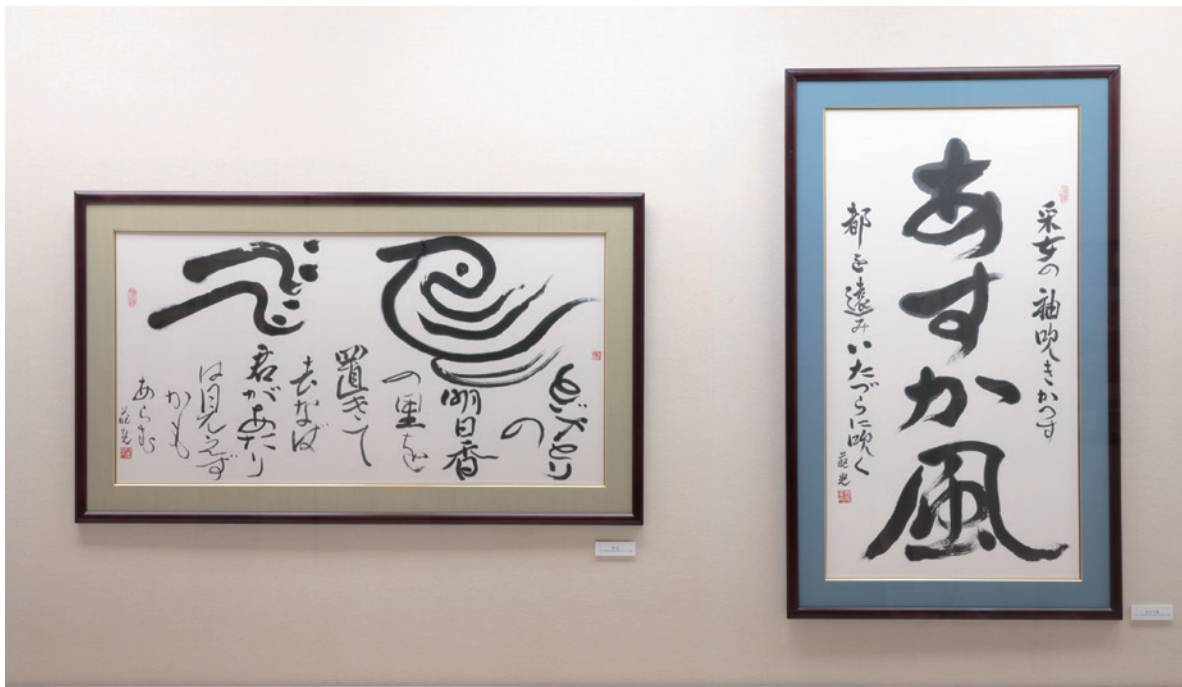 とぶとり
の
明日香
の里を
置きて
去なば
君があたり
は見えず
かも
あらむ
采女の袖吹きかへす
あすか風
都を遠みいたづらに吹く